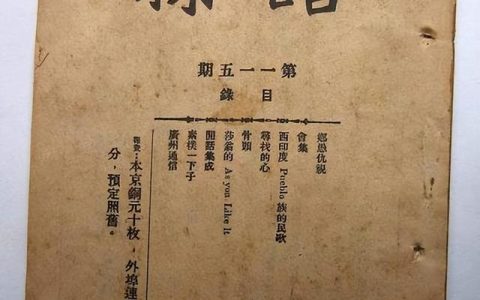 第一一五期
目錄
鄉愚仇視
會集
西印度 Pueblo 族的民歌
尋找的心
骨頭
莎翁的 As you Like It
閒話集成
素樸一下子
廣州通信
報費：本京銅元十枚，外埠連
分，預定照舊。